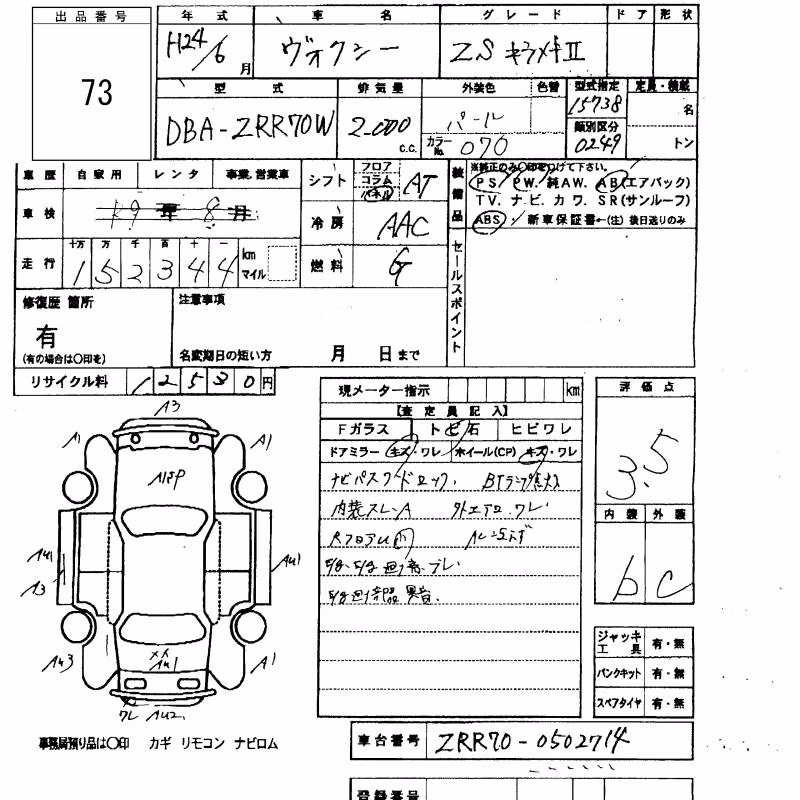 出品番号
73
年式 車名 グレード ドア 形状
H24/6月 ヴォクシー ZS キラメキⅡ
型式 排気量 外装色 色替 型式指定 定員・積載
DBA-ZRR70W 2.000 c.c. パール 15738 名
カラーNo. 070 類別区分 0249 トン
車歴 自家用 レンタ 事業.営業車
車検 R9年8月
走行 十万 万 千 百 十 一
152344 km マイル
シフト フロア コラム パネル AT
冷房 AAC
燃料 G
装備品
※純正のみ〇印をつけて下さい。
PS. PW. 純AW. AB(エアバック)
TV. ナビ. カワ. SR(サンルーフ)
ABS. 新車保証書←(注) 後日送りのみ
セールスポイント
修復歴 箇所
有
(有の場合は〇印を)
注意事項
名変期日の短い方 月 日まで
リサイクル料 12530円
現メーター指示 km
【査定員記入】
Fガラス トビ石 ヒビワレ
ドアミラー キズ・ワレ ホイール(CP) キズ・ワレ
ナビパスワードロック.
内装スレ.A 外エアロ.ワレ
RフロアU
異音.
評価点
3.5
内装 外装
b C
ジャッキ工具 有・無
パンクキット 有・無
スペアタイヤ 有・無
A3
A1 A1
A1 A1
A3
AU3 AU1 A1
ワレ AU2
事務局預り品は〇印 カギ リモコン ナビロム
車台番号 ZRR70-0502714
登録番号